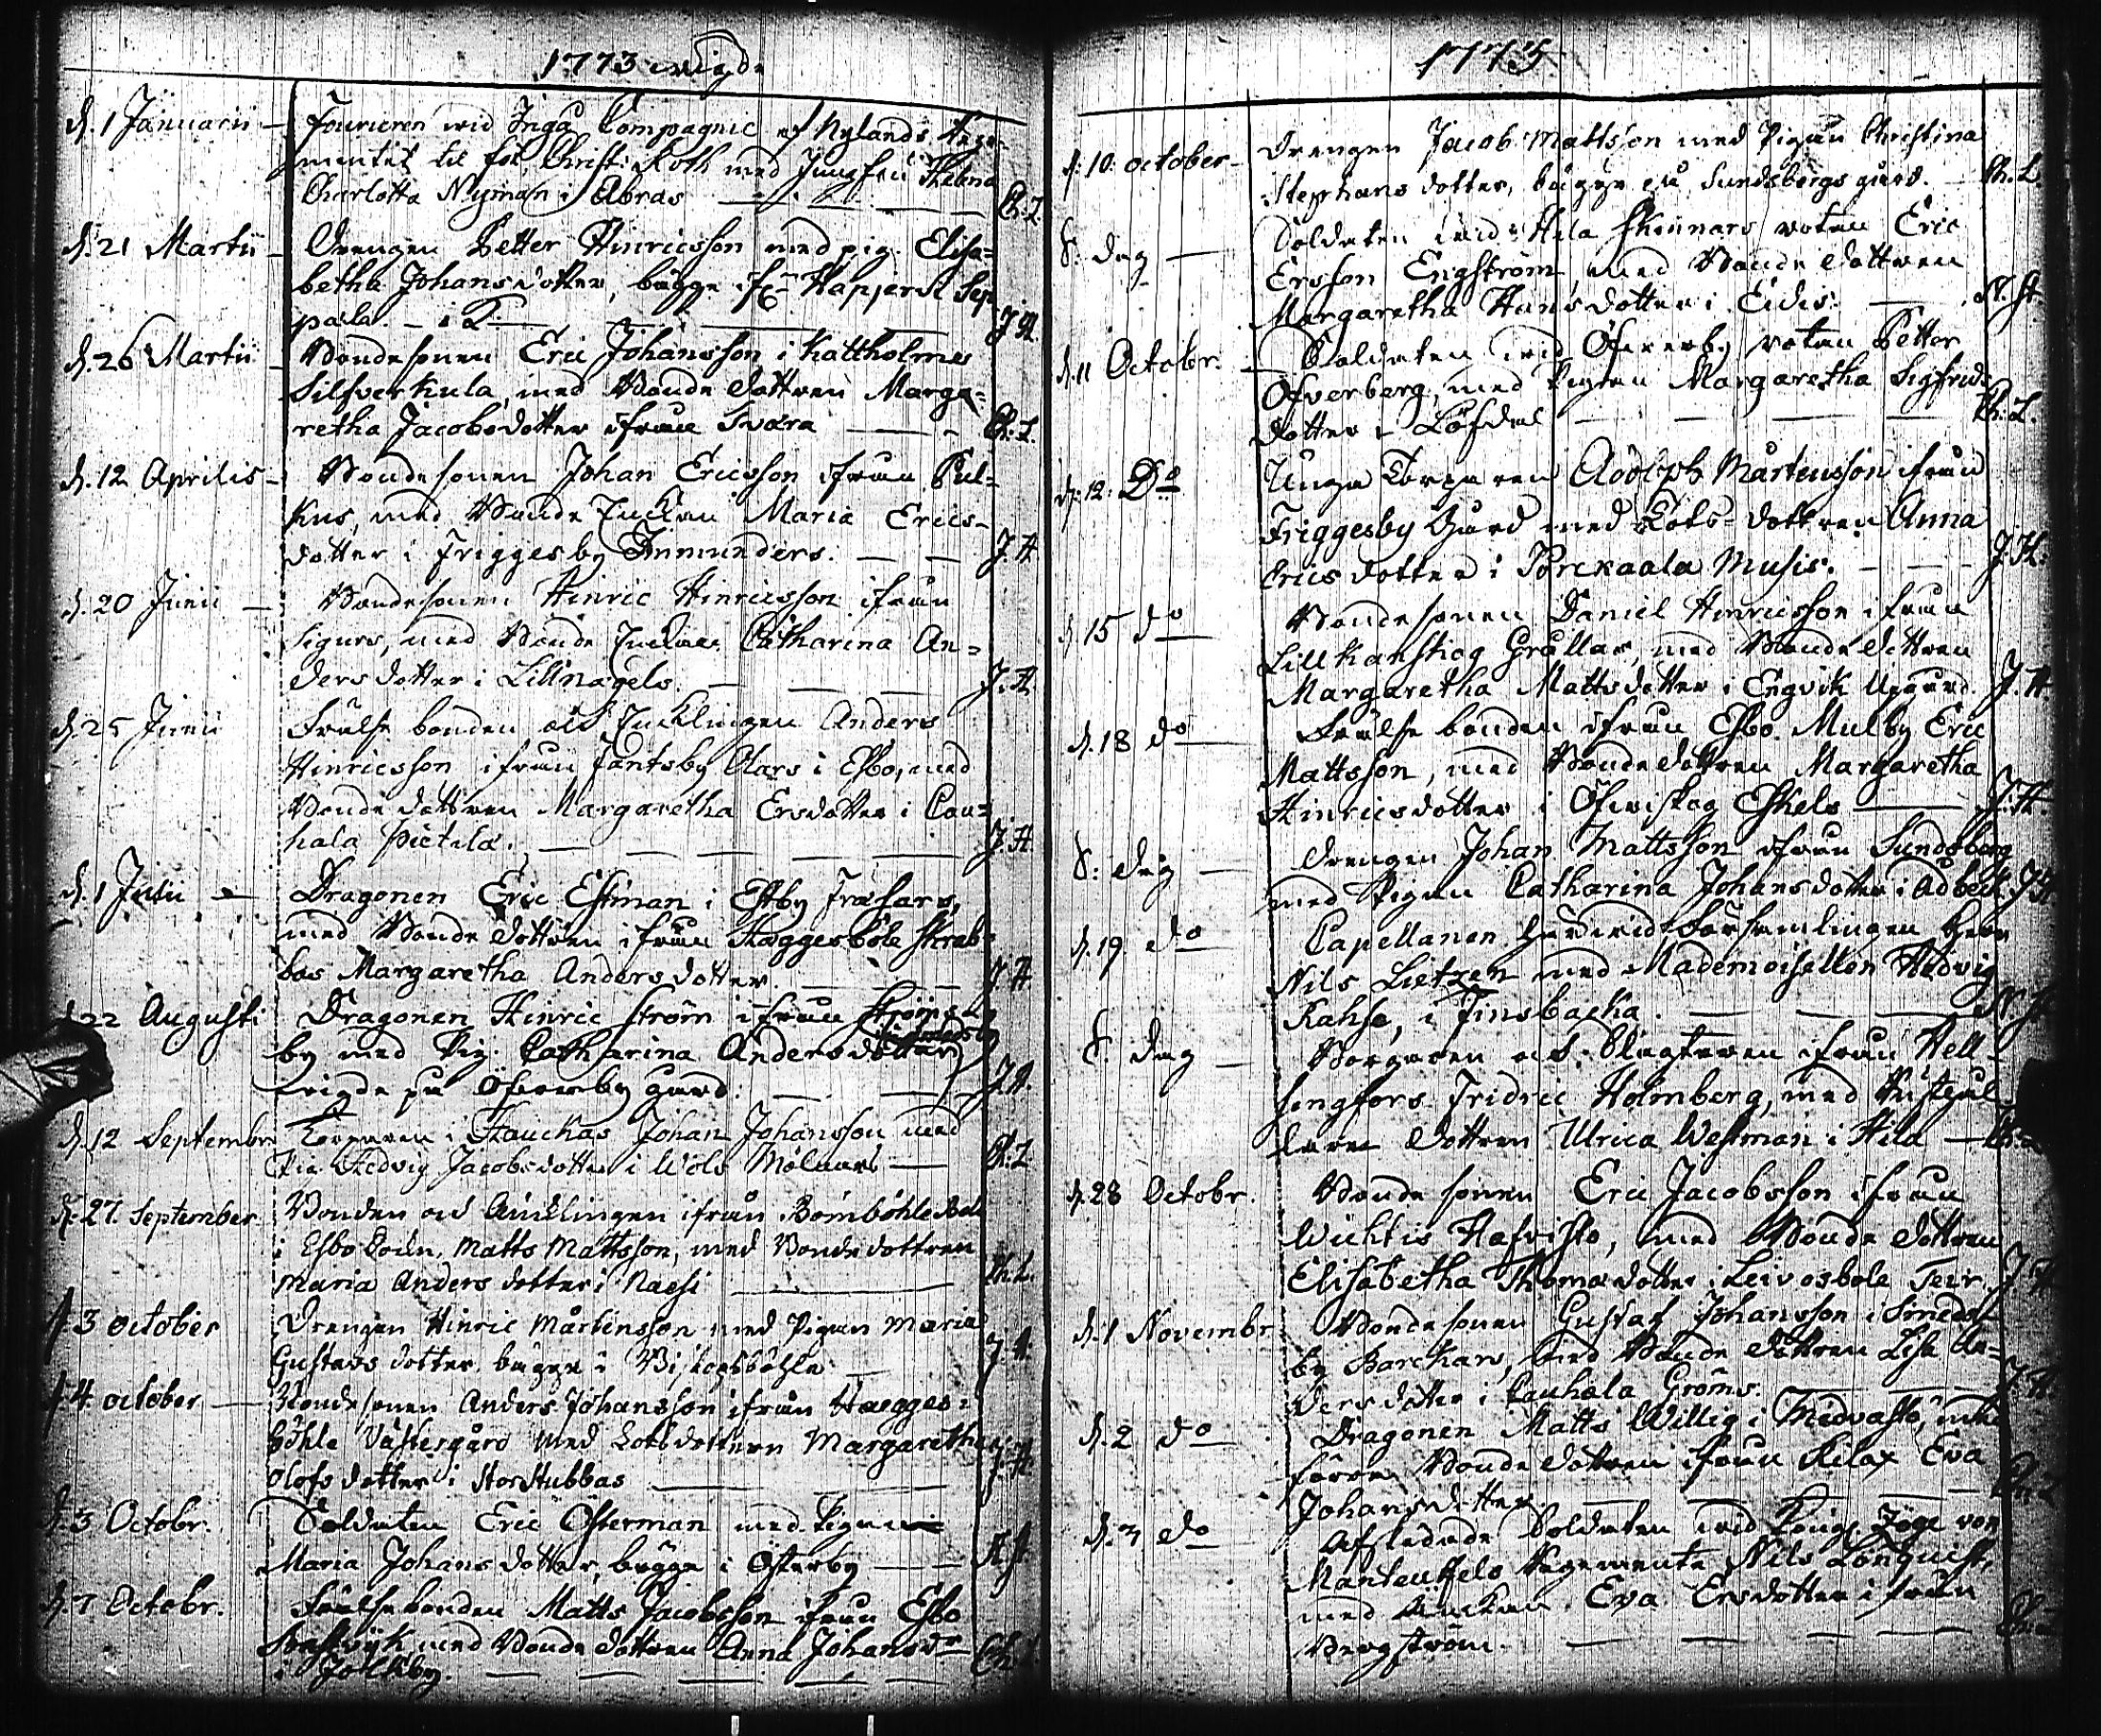 1773 wigde
d. 1 Januarii - Foureren wid Inga Compagnie af Nylands Rege-
mentet til fot, Christ: Roth med Jungfru Helena
Charlotta Nyman i Abras Ch. L.
d. 21 Martii - Drengen Petter Hinricsson med pig. Elisa=
betha Johansdotter, bägge ifr. Hapjerfvi Sep
pala. J. H.
d. 26 Martii - Bondesonen Eric Johansson i Kattholmes
Silfverkula, med Bonde dottren Marga=
retha Jacobsdotter ifrån Svara Ch. L.
d. 12 Aprilis - Bondesonen Johan Ericsson ifrån Pul=
kus, med Bonde Enckan Maria Erics-
dotter i Friggesby Anmunders. J. H.
d. 20 Junii Bondesonen Hinric Hinricsson ifrån
Sigurs, med Bonde Enckan Catharina An=
dersdotter i Lillnägels. J. H.
d. 25 Junii Frälse bonden och Encklingen Anders
Hinricsson ifrån Fantsby Clars i Esbo, med
Bonde dottren Margaretha Ersdotter i Cau=
hala Pietilä. J. H.
d. 1 Julii Dragonen Eric Estman i Estby Frasars,
med Bonde dottren ifrån Haggesböle Skrab-
bas Margaretha Andersdotter. J. H.
d. 22 Augusti Dragonen Hinric Ström ifrån Strömps
by med Pig. Catharina Andersdotter
wigde på Öfverby gård. J. H.
d. 12 Septembr. Torparen i Hauckas Johan Johansson med
Pig. Hedvig Jacobsdotter i Wols Mölnars Ch. L.
d. 27. September Bonden och Äncklingen ifrån Bömböhle
i Esbo Sockn, Matts Mattsson, med Bondedottren
Maria Andersdotter i Naesi Ch. L.
d. 3 october Drengen Hinric Mårtensson med Pigan Maria
Gustavsdotter bägge i Biskopsböhle J. H.
d. 4. october Bondesonen Anders Johansson ifrån Haegges=
böhle Västergård med Lotsdottern Margaretha
Olofsdotter i Storstubbas J. H.
d. 5 Octobr. Soldaten Eric Österman med Pigan
Maria Johansdotter, bägge i Österby N. L.
d. 7 Octobr. Frälsebonden Matts Jacobsson ifrån Esbo
med Bonde dottren Anna Johansdr
i Jolkby. Ch. L.
1773
d: 10. october - Drengen Jacob Mattsson med Pigan Christina
Stephans dotter, bägge på Sundsbergs gård. Ch. L.
S: dag Soldaten wid Hila Skinnars roten Eric
Ersson Engström, med Bonde dottren
Margaretha Hansdotter i Eidis.
d. 11 Octobr. Soldaten wid Öfverby roten Petter
Öfverberg, med Pigan Margaretha Sigfrids
dotter i Löfdal Ch. L.
d: 12: Do Unga Torparen Adolph Mårtensson ifrån
Friggesby Gård med Lots-dottren Anna
Ericsdotter i Porckaala Musis. J. H.
d. 15 do Bondesonen Daniel Hinricsson ifrån
Lill Kanskog Grållar, med Bonde dottren
Margaretha Mattsdotter i Engvik Upgård. J. H.
d. 18 do Frälse bonden ifrån Esbo Mulby Eric
Mattsson, med Bonde dottren Margaretha
Hinricsdotter i Öfverskog Eskels J. H.
S: dag Drengen Johan Mattsson ifrån Sundsberg
med Pigan Catharina Johansdotter i Adbeck J. H.
d. 19. do Capellanen wid Församlingen Herr
Nils Lietzen med Mademoisellen Hedvig
Rahse, i Finsbacka.
S. dag Borgaren och Slagtaren ifrån Hell-
singfors Fridric Holmberg, med
dottren Ulrica Westman i Hila Ch.
d. 28 Octobr. Bonde sonen Eric Jacobsson ifrån
Wichtis Hafvisto, med Bonde dottren
Elisabetha Thomasdotter i Leivosböle Teir. J. H.
d. 1 Novembr Bonde sonen Gustaf Johansson i Smeds-
by Barckars, med Bonde dottren Lisa An=
dersdotter i Cauhala Gröms. J. H.
d. 2 do Dragonen Matts Willig i Medvasta,
Bonde dottren ifrån Kilax Eva
Johansdotter Ch. L.
d. 3 do Afskedade Soldaten wid Kongl. Zöge von
Manteuffels Regemente Nils Lönquist,
med Änckan Eva Ersdotter ifrån
Bergström. Ch. L.